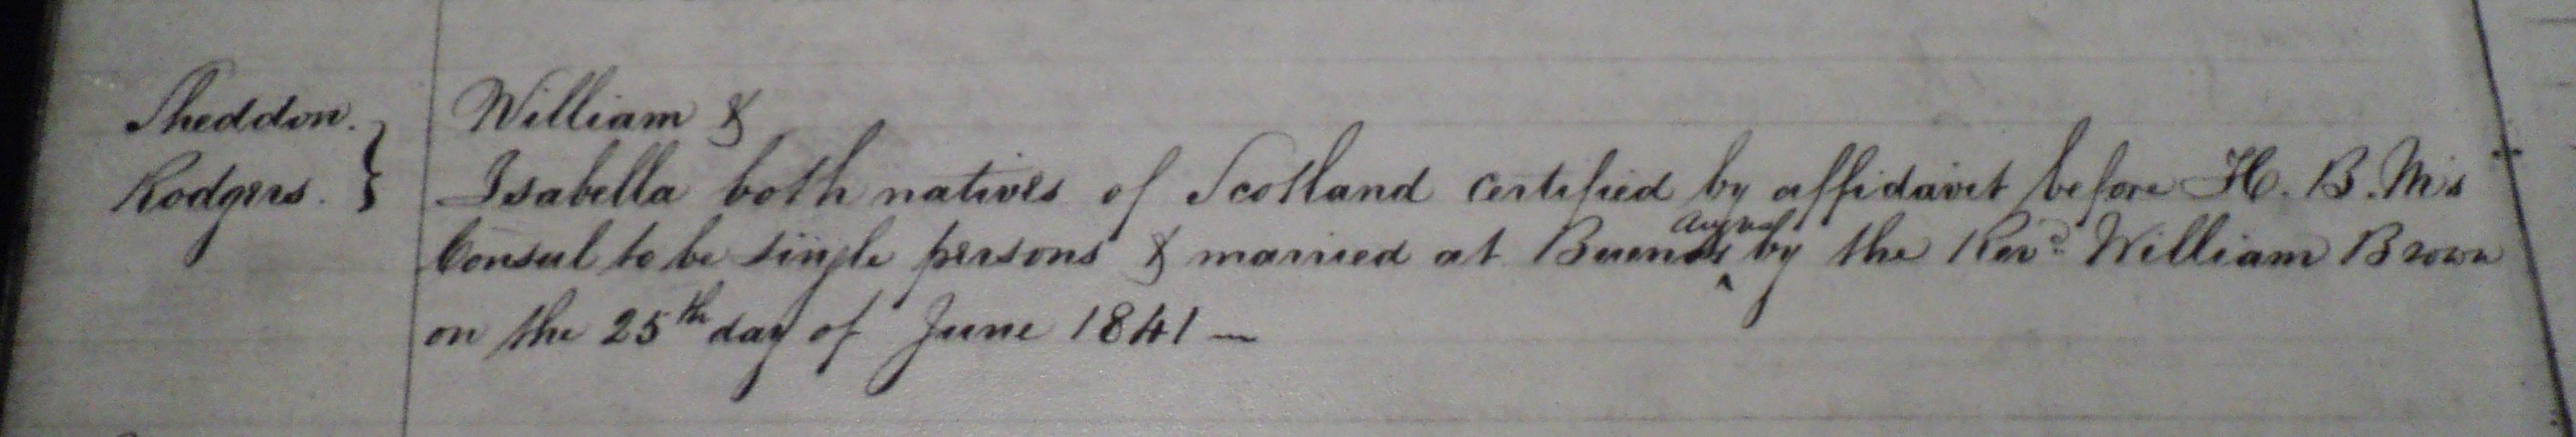 Sheddon. William &
Rodgers. Isabella both natives of Scotland certified by affidavit before H. B. M's
Consul to be single persons & married at Buenos ayres by the Revd. William Brown
on the 25th day of June 1841 —